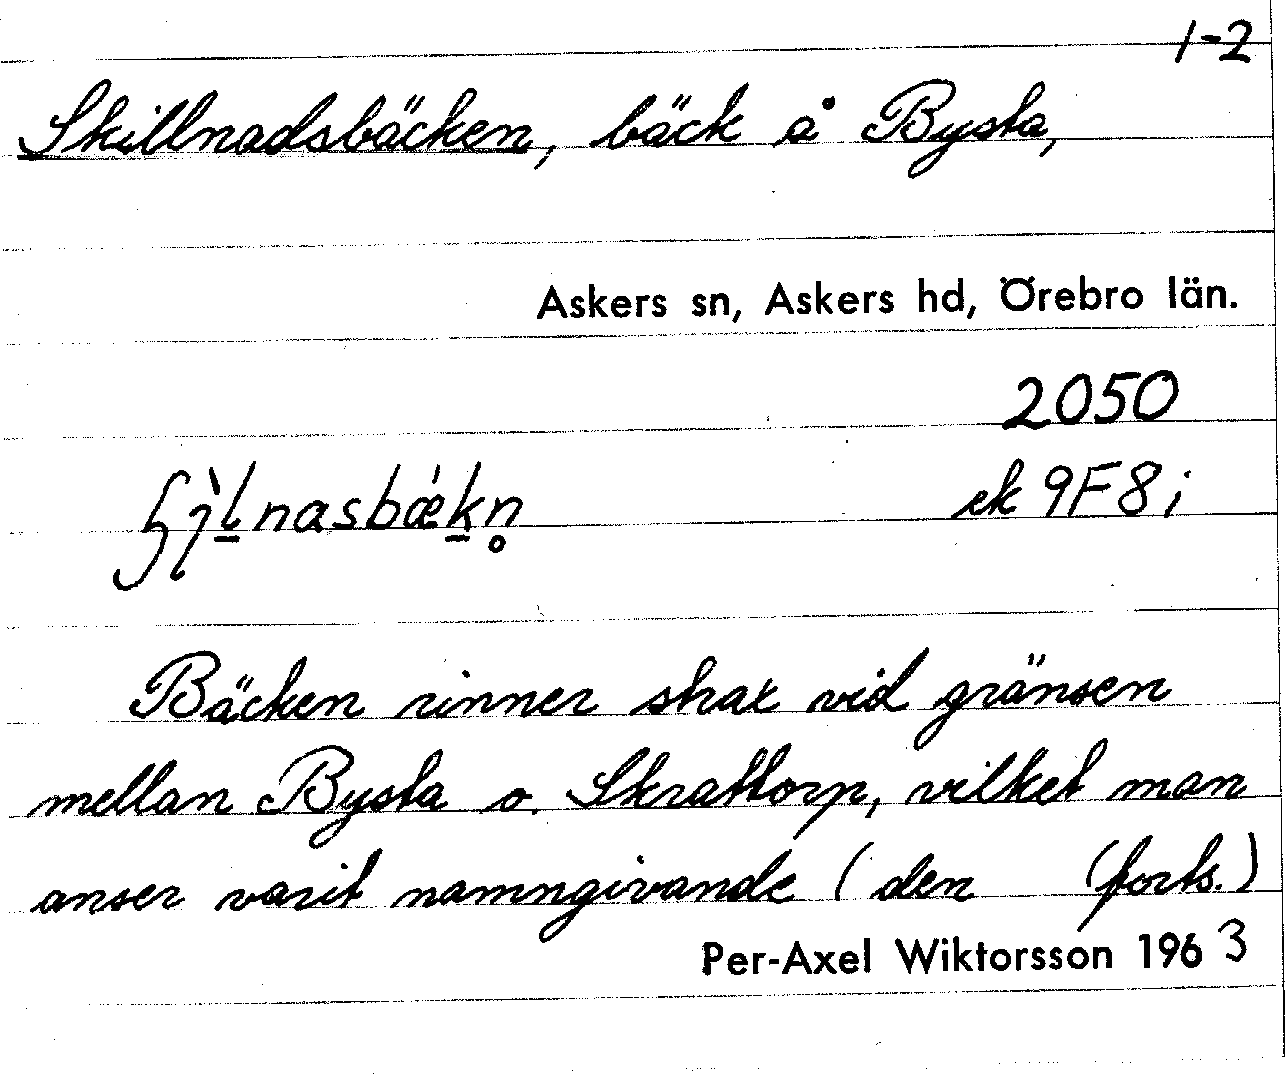 1-2
Skillnadsbäcken, bäck å Bysta,
Askers sn, Askers hd, Örebro län.
2050
ek 9F8i
Bäcken rinner strax vid gränsen
mellan Bysta o. Skrattorp, vilket man
anser varit namngivande (den (forts.)
Per-Axel Wiktorsson 1963